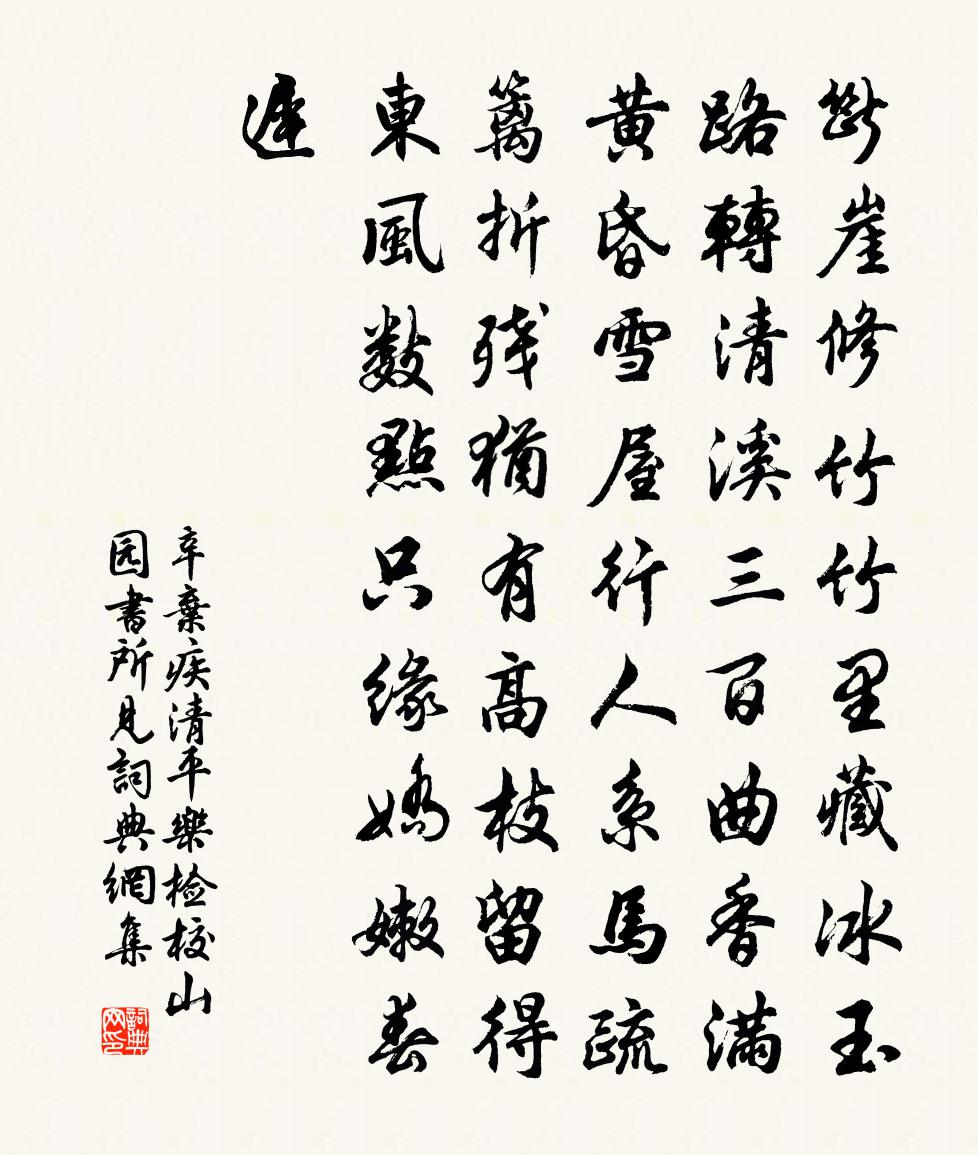 斷崖修竹竹里藏冰玉
路轉清溪三百曲香滿
黃昏雪屋行人系馬疏
篱折殘猶有高枝留得
東風數點只緣嬌嫩春
遲
辛棄疾清平樂檢校山
园書所見詞典網集
詞典网印